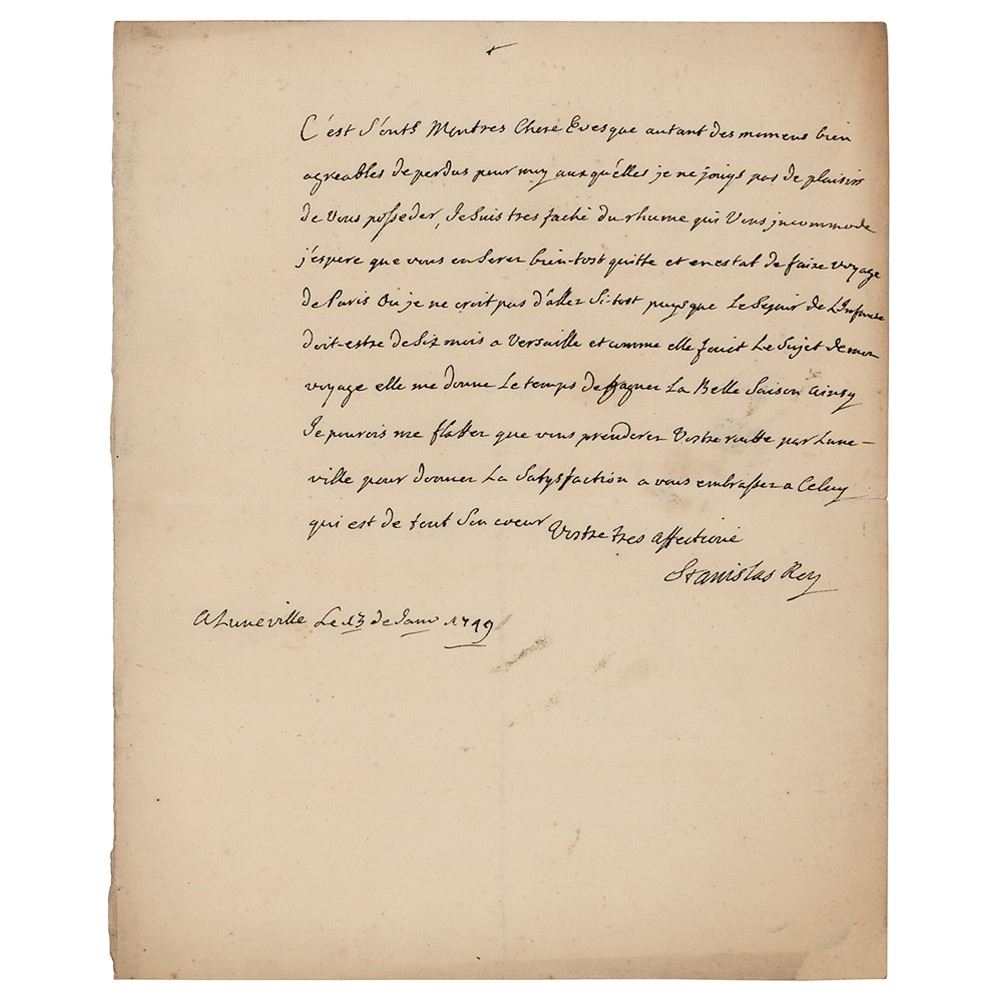 C'est s'ont Mon tres Chere Evesque autant des momens bien
agreables de perdus pour moy aux qu'elles je ne jouys pas de plaisirs
de Vous posseder, Je suis tres faché du rhume qui Vous jncommode
j'espere que vous en serez bien-tost quitte et en estat de faire voyage
de Paris Ou je ne croit pas d'aller Si-tost puysque Le Sejour de L'Infante
doit-estre de Six mois a Versaille et comme elle Le Sujet de mon
voyage elle me donne Le temps de gagner La Belle Saison ainsy
Je pourois me flatter que vous prenderez Vostre routte par Lune-
ville pour donner La Satysfaction a vous embrasser a Celuy
qui est de tout Son coeur
Vostre tres affectioné
Stanislas Roy
A Luneville Le 13 de Janv 1749